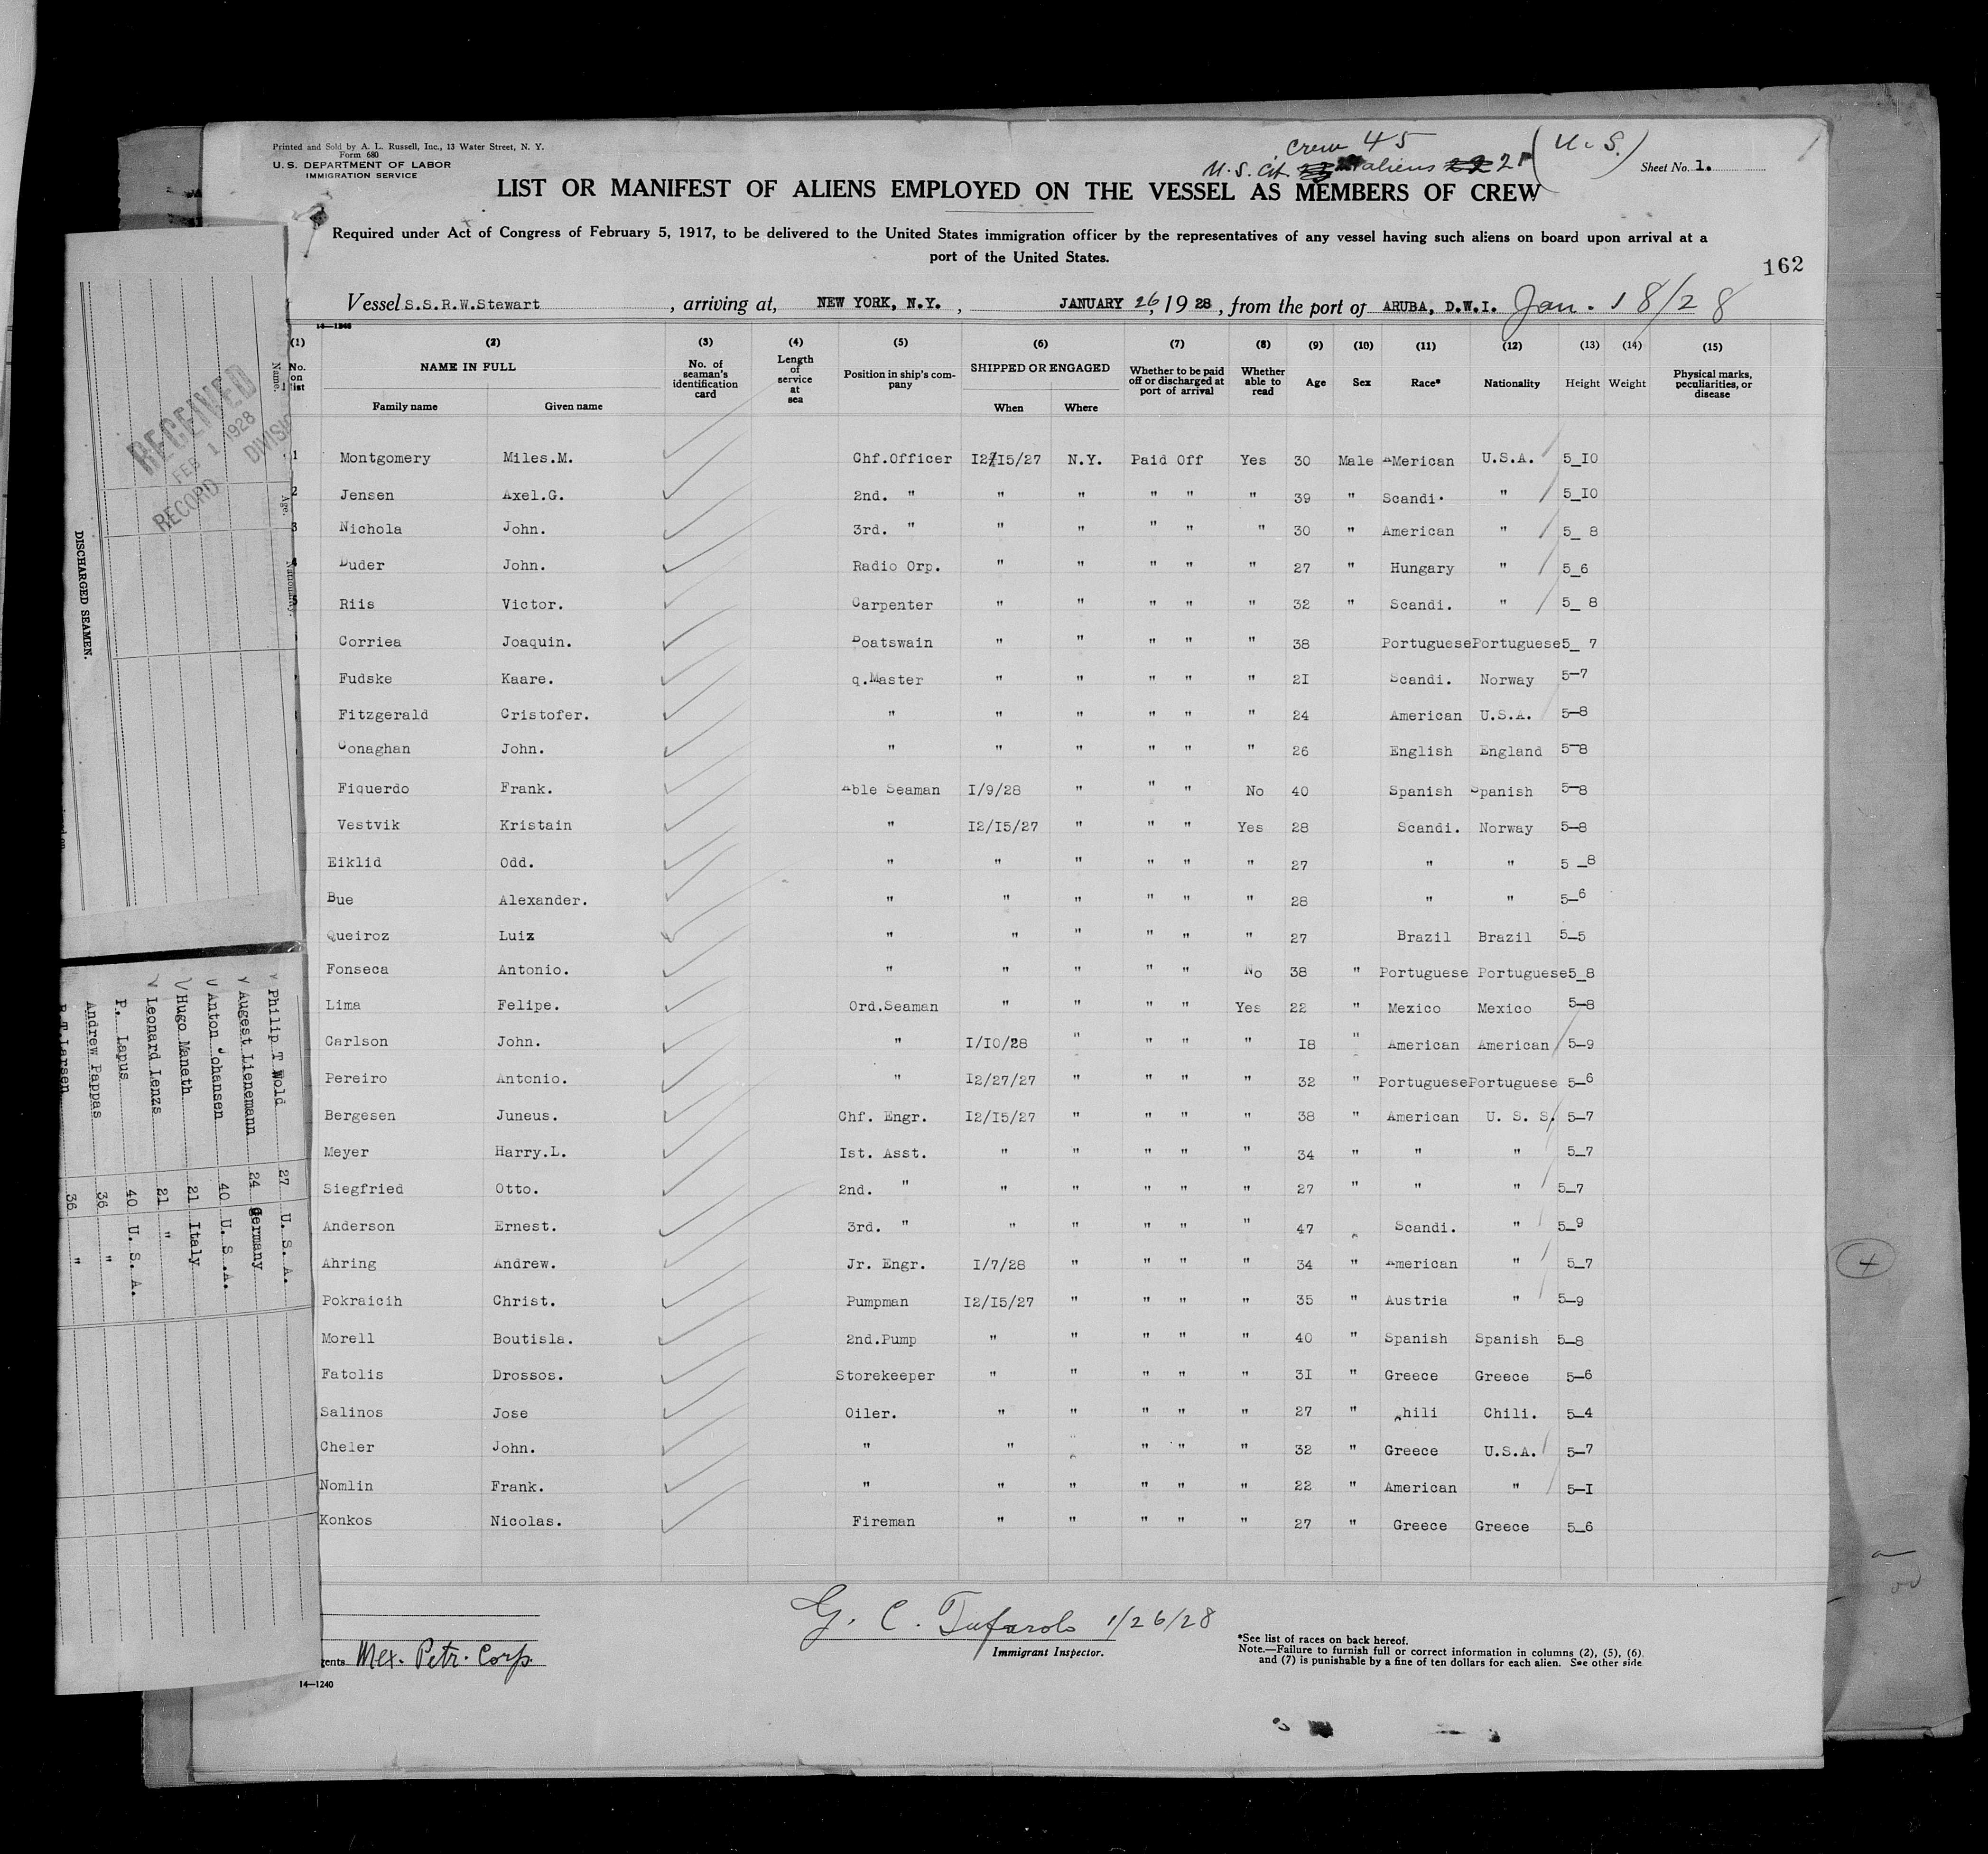 Printed and Sold by A. L. Russell, Inc., 13 Water Street, N. Y.
Form 680
U. S. DEPARTMENT OF LABOR
IMMIGRATION SERVICE
Crew 45
U.S. Cit. aliens 21 (U.S.)
Sheet No. 1.
LIST OR MANIFEST OF ALIENS EMPLOYED ON THE VESSEL AS MEMBERS OF CREW
Required under Act of Congress of February 5, 1917, to be delivered to the United States immigration officer by the representatives of any vessel having such aliens on board upon arrival at a
port of the United States.
162
Vessel S.S.R.W.Stewart , arriving at, NEW YORK, N.Y. , JANUARY 26, 19 28 , from the port of ARUBA, D.W.I. Jan. 18/28
14—1240
(1) (2) (3) (4) (5) (6) (7) (8) (9) (10) (11) (12) (13) (14) (15)
No. on list NAME IN FULL Family name Given name No. of seaman's identification card Length of service at sea Position in ship's company SHIPPED OR ENGAGED When Where Whether to be paid off or discharged at port of arrival Whether able to read Age Sex Race* Nationality Height Weight Physical marks, peculiarities, or disease
1 Montgomery Miles.M. Chf.Officer I2/I5/27 N.Y. Paid Off Yes 30 Male American U.S.A. 5_I0
2 Jensen Axel.G. 2nd. " " " " " " 39 " Scandi. " 5_I0
3 Nichola John. 3rd. " " " " " " 30 " American " 5_ 8
4 Duder John. Radio Orp. " " " " " 27 " Hungary " 5_6
5 Riis Victor. Carpenter " " " " " 32 " Scandi. " 5_ 8
Corriea Joaquin. Boatswain " " " " " 38 Portuguese Portuguese 5_ 7
Fudske Kaare. q.Master " " " " " 2I Scandi. Norway 5-7
Fitzgerald Cristofer. " " " " " " 24 American U.S.A. 5-8
Conaghan John. " " " " " " 26 English England 5-8
Fiquerdo Frank. Able Seaman I/9/28 " " " No 40 Spanish Spanish 5-8
Vestvik Kristain " I2/I5/27 " " " Yes 28 Scandi. Norway 5-8
Eiklid Odd. " " " " " " 27 " " 5 _8
Bue Alexander. " " " " " " 28 " " 5_6
Queiroz Luiz " " " " " " 27 Brazil Brazil 5_5
Fonseca Antonio. " " " " " No 38 " Portuguese Portuguese 5_8
Lima Felipe. Ord.Seaman " " " " Yes 22 " Mexico Mexico 5-8
Carlson John. " I/I0/28 " " " " I8 " American American 5-9
Pereiro Antonio. " I2/27/27 " " " " 32 " Portuguese Portuguese 5_6
Bergesen Juneus. Chf. Engr. I2/I5/27 " " " " 38 " American U. S. S. 5-7
Meyer Harry.L. Ist. Asst. " " " " " 34 " " " 5_7
Siegfried Otto. 2nd. " " " " " " 27 " " " 5_7
Anderson Ernest. 3rd. " " " " " " 47 Scandi. " 5_9
Ahring Andrew. Jr. Engr. I/7/28 " " " " 34 " American " 5_7
Pokraicih Christ. Pumpman I2/I5/27 " " " " 35 " Austria " 5-9
Morell Boutisla. 2nd.Pump " " " " " 40 " Spanish Spanish 5-8
Fatolis Drossos. Storekeeper " " " " " 3I " Greece Greece 5-6
Salinos Jose Oiler. " " " " " 27 " Chili Chili. 5-4
Cheler John. " " " " " " 32 " Greece U.S.A. 5-7
Nomlin Frank. " " " " " " 22 " American " 5-I
Konkos Nicolas. Fireman " " " " " 27 " Greece Greece 5_6
G. C. Tufarolo 1/26/28
Immigrant Inspector.
gents Mex. Petr. Corp.
14—1240
*See list of races on back hereof.
Note.—Failure to furnish full or correct information in columns (2), (5), (6)
and (7) is punishable by a fine of ten dollars for each alien. See other side
4
DISCHARGED SEAMEN.
Name. Age. Nationality.
RECEIVED
FEB 1 1928
RECORD DIVISIO
Philip T Wold 27 U. S. A.
Augest Lienemann 24 Germany
Anton Johansen 40 U. S .A.
Hugo Maneth 21 Italy
Leonard Lenzs 21 "
P. Lapus 40 U. S. A.
Andrew Pappas 36 "
Larsen 36 "